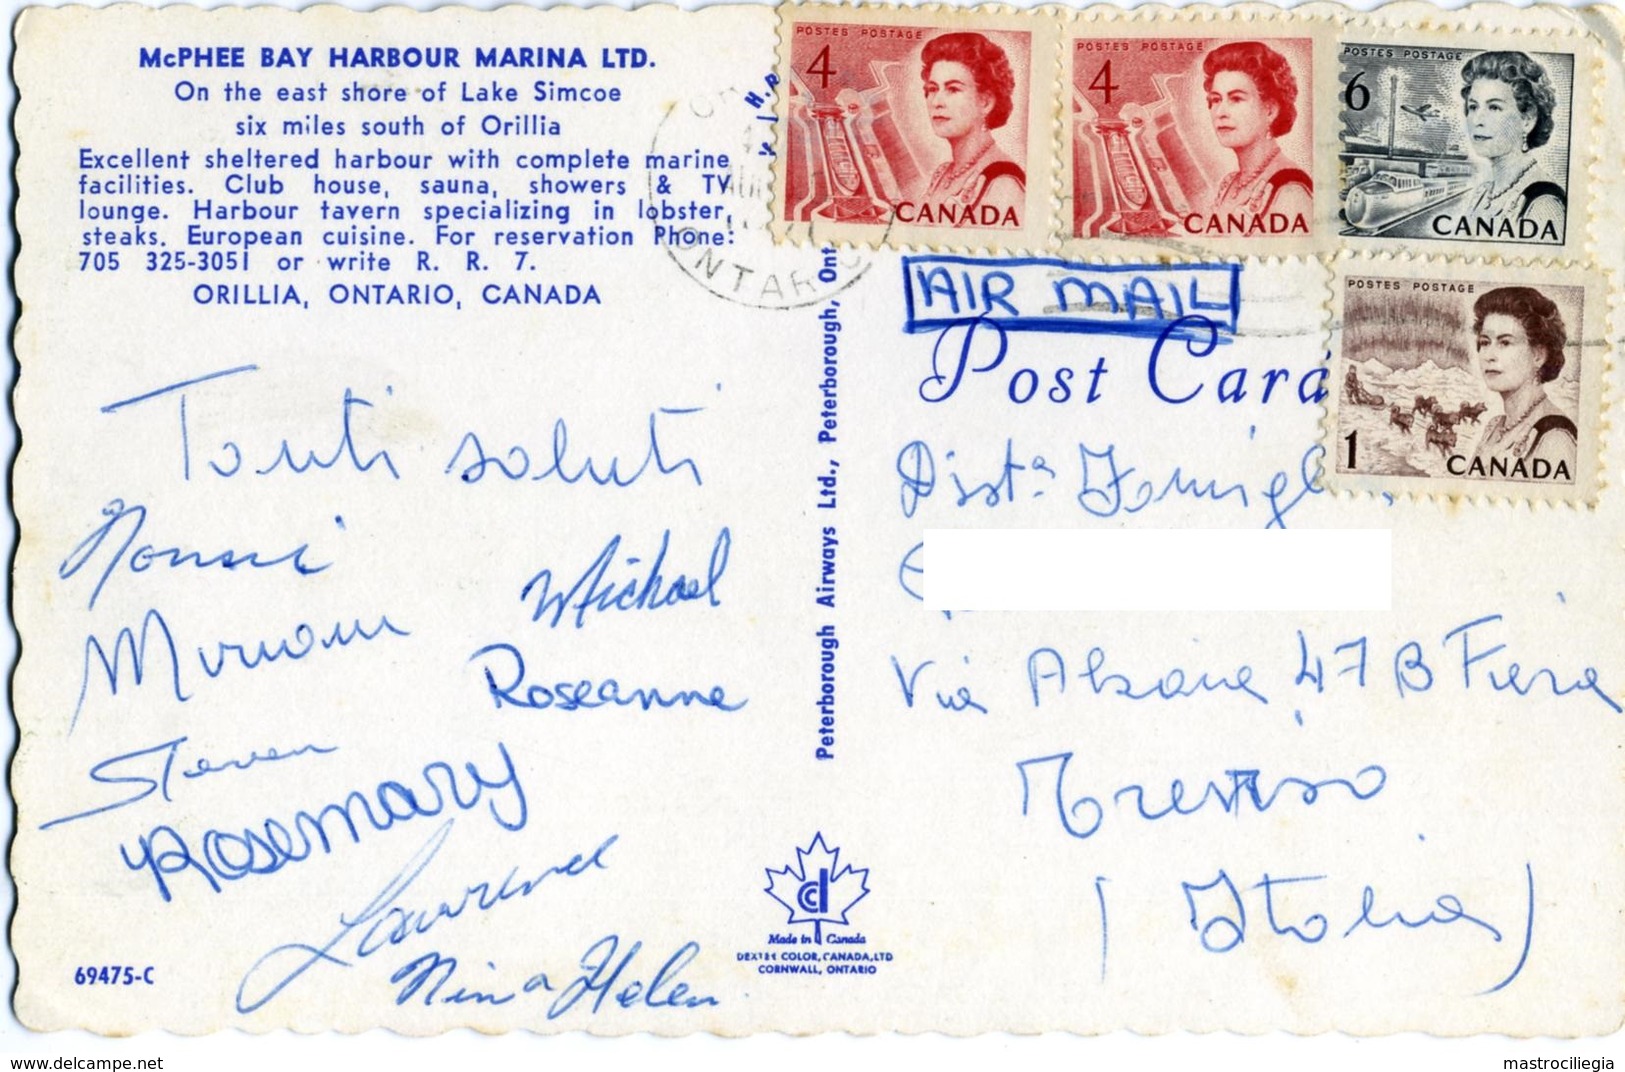 McPHEE BAY HARBOUR MARINA LTD.
On the east shore of Lake Simcoe
six miles south of Orillia
Excellent sheltered harbour with complete marine
facilities. Club house, sauna, showers & TV
lounge. Harbour tavern specializing in lobster,
steaks. European cuisine. For reservation Phone:
705 325-3051 or write R. R. 7.
ORILLIA, ONTARIO, CANADA
Tanti saluti
Miriam
Michael
Roseanne
Steven
Rosemary
Laurence
Nina Helen
69475-C
Peterborough Airways Ltd., Peterborough, Ont
Made in Canada
DEXTER COLOR, CANADA, LTD
CORNWALL, ONTARIO
ONTARIO
POSTES POSTAGE
4
CANADA
POSTES POSTAGE
4
CANADA
POSTES POSTAGE
6
CANADA
POSTES POSTAGE
1
CANADA
AIR MAIL
Post Card
Dist.a Famigl
Via 47 B Fiera
Treviso
(Italia)
delcampe.net
mastrociliegia